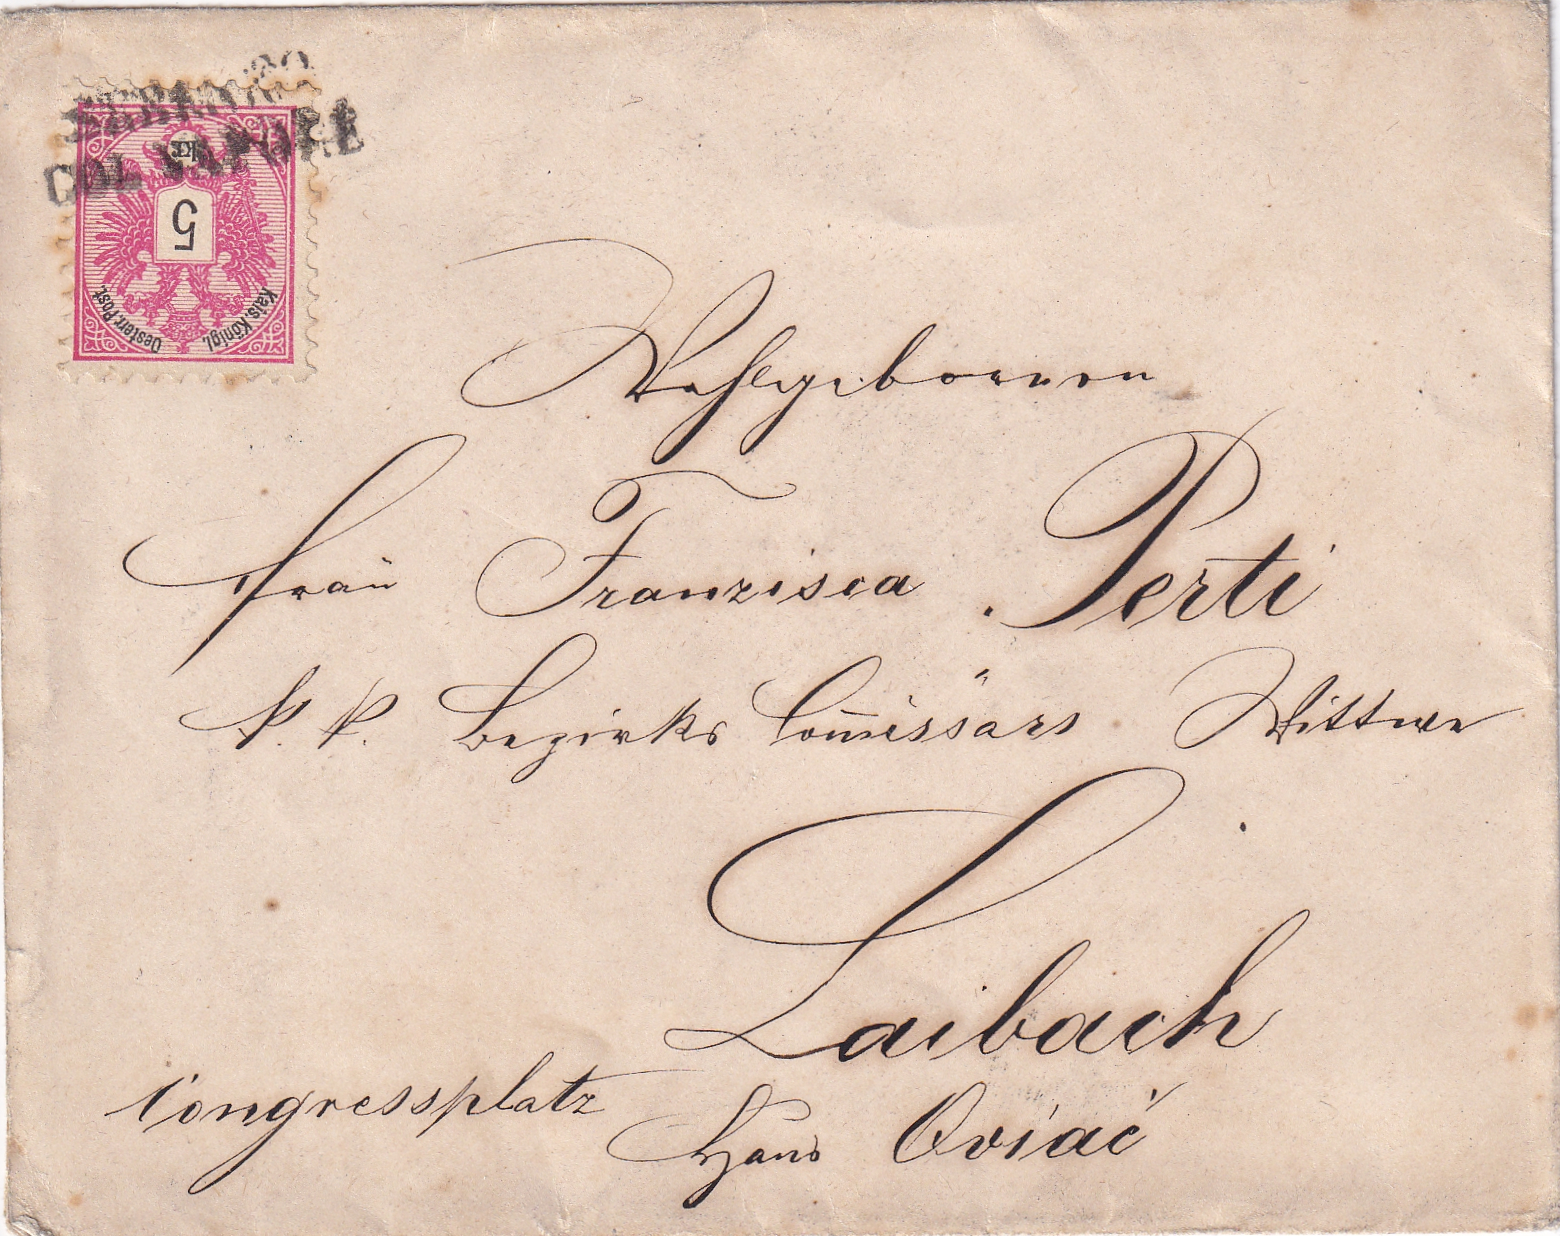 COL VAPORE
kr.
5
Kais. Königl. Oesterr. Post.
Wohlgeboren
Frau Franzisca Perti
k. k. Bezirks Com̄issärs Wittwe
Laibach
Congressplatz
Haus